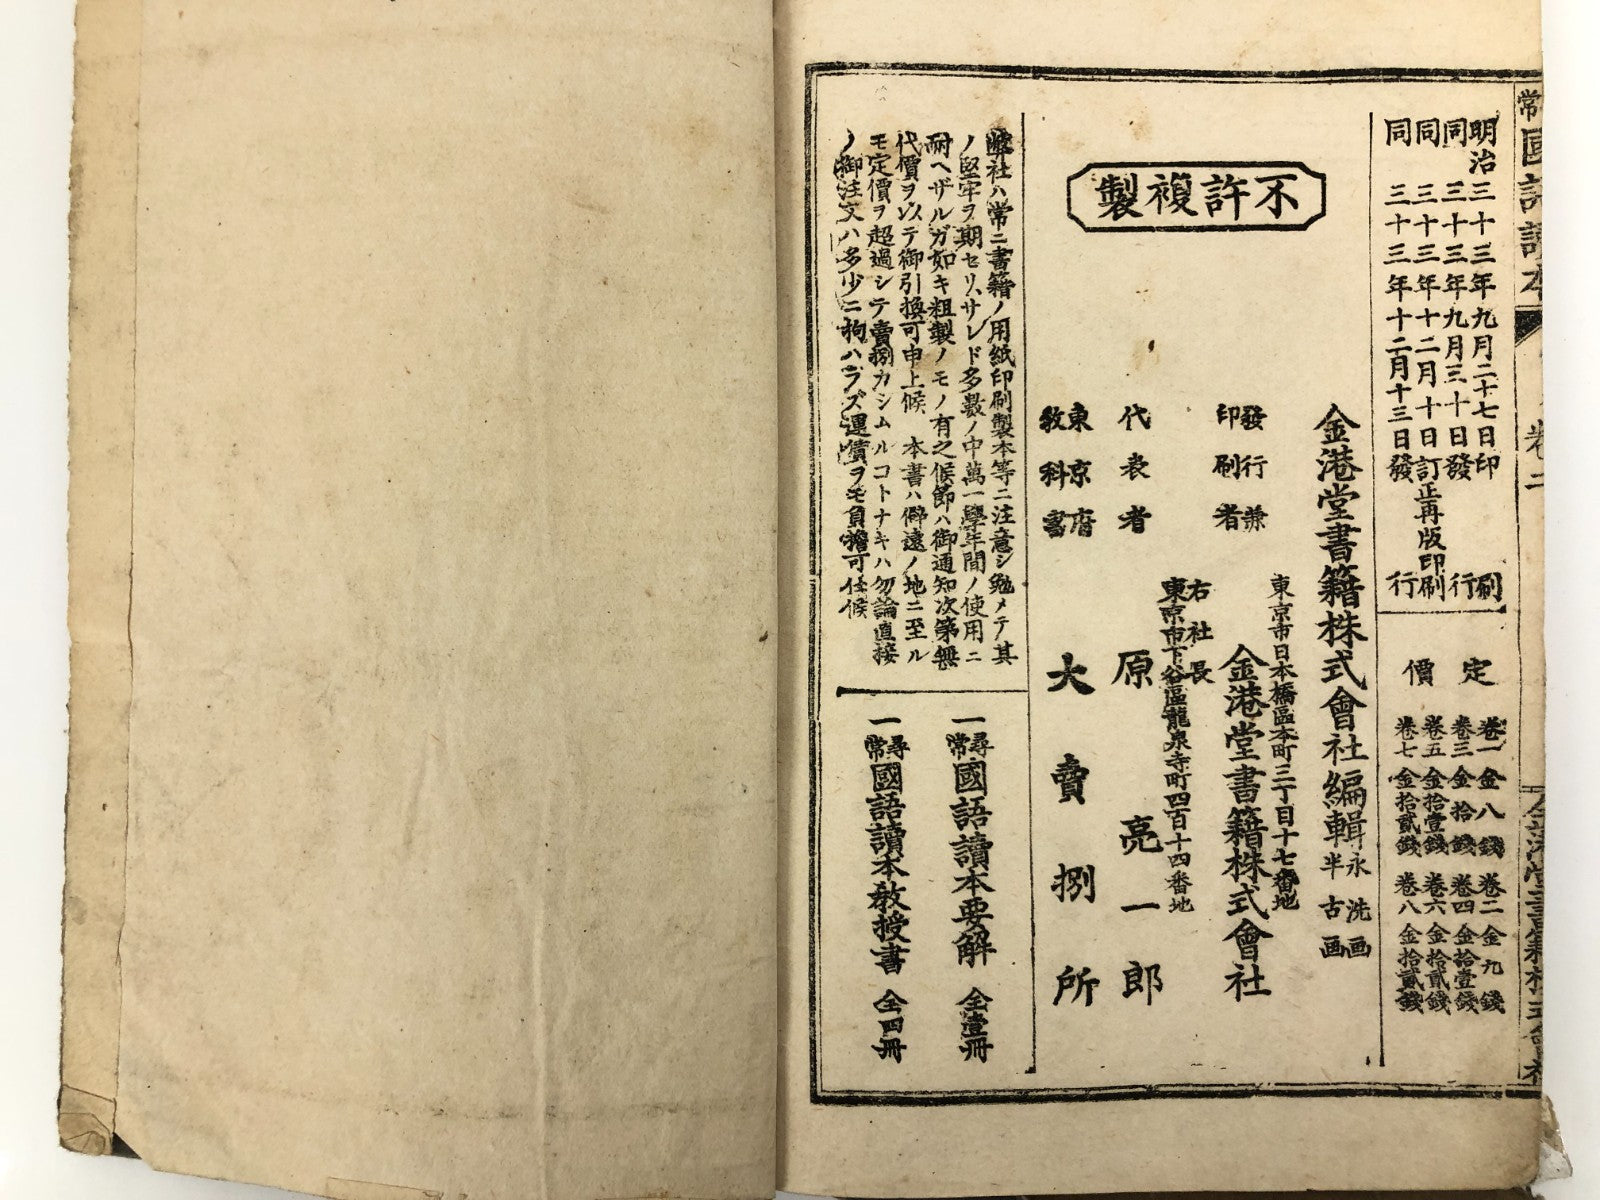 常國語讀本
卷二
明治三十三年九月二十七日印刷
同三十三年九月三十日發行
同三十三年十二月十日訂正再版印刷
同三十三年十二月十三日發行
定價
卷一金八錢 卷二金九錢
卷三金拾錢 卷四金拾壹錢
卷五金拾壹錢 卷六金拾貳錢
卷七金拾貳錢 卷八金拾貳錢
不許複製
金港堂書籍株式會社編輯
永洗画
半古画
東京市日本橋區本町三丁目十七番地
發行兼印刷者 金港堂書籍株式會社
右社長
東京市下谷區龍泉寺町四百十四番地
代表者 原亮一郎
東京府教科書 大賣捌所
弊社ハ常ニ書籍ノ用紙印刷製本等ニ注意シ勉メテ其
ノ堅牢ヲ期セリ、サレド多數ノ中萬一學年間ノ使用ニ
耐ヘザルガ如キ粗製ノモノ有之候節ハ御通知次第無
代價ヲ以テ御引換可申上候 本書ハ僻遠ノ地ニ至ル
モ定價ヲ超過シテ賣捌カシムルコトナキハ勿論直接
ノ御注文ハ多少ニ拘ハラズ運賃ヲモ負擔可仕候
一尋常國語讀本要解 全壹冊
一尋常國語讀本教授書 全四冊